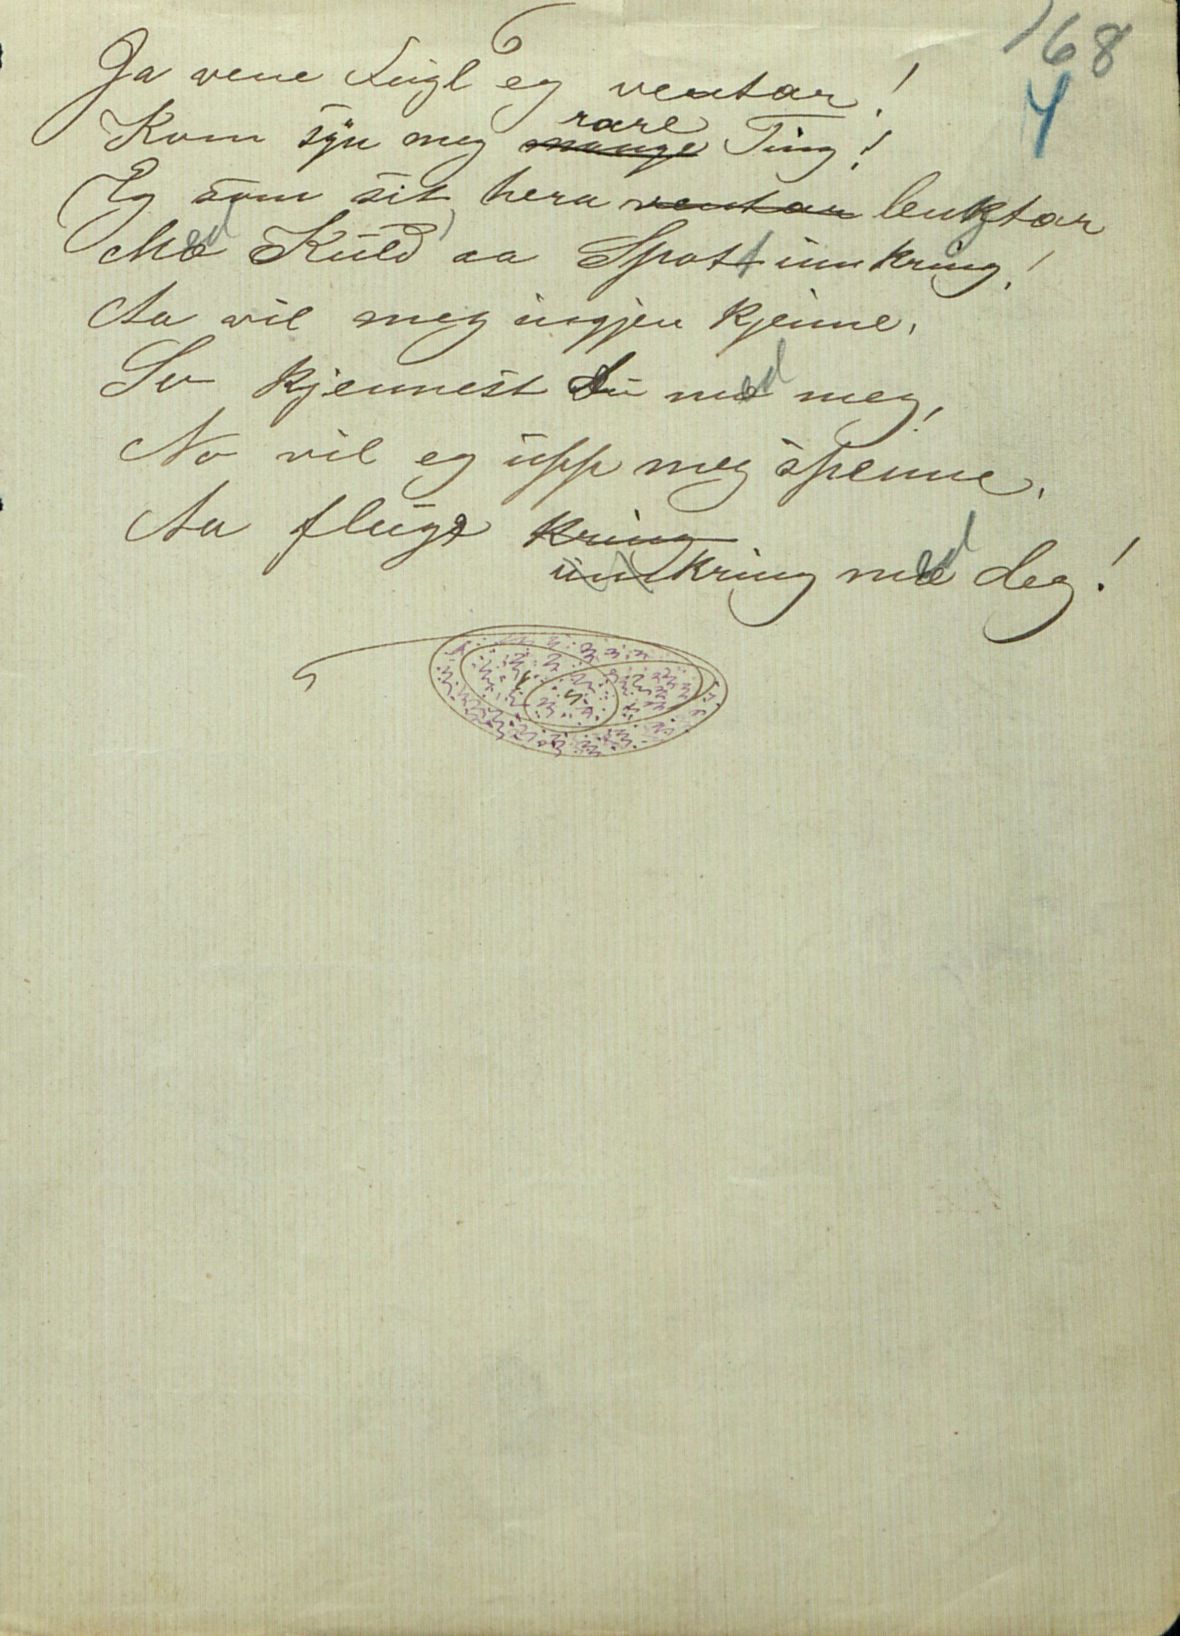 168
4
Ja vene Fugl eg ventar!
Kom syn meg mange rare Ting!
Eg som sit hera ventar lenktar
Med Kuld aa Spott um kring!
Aa vil meg ingjen kjenne,
So kjennest du med meg,
No vil eg upp meg spenne,
Aa fluga kring
umkring med deg!